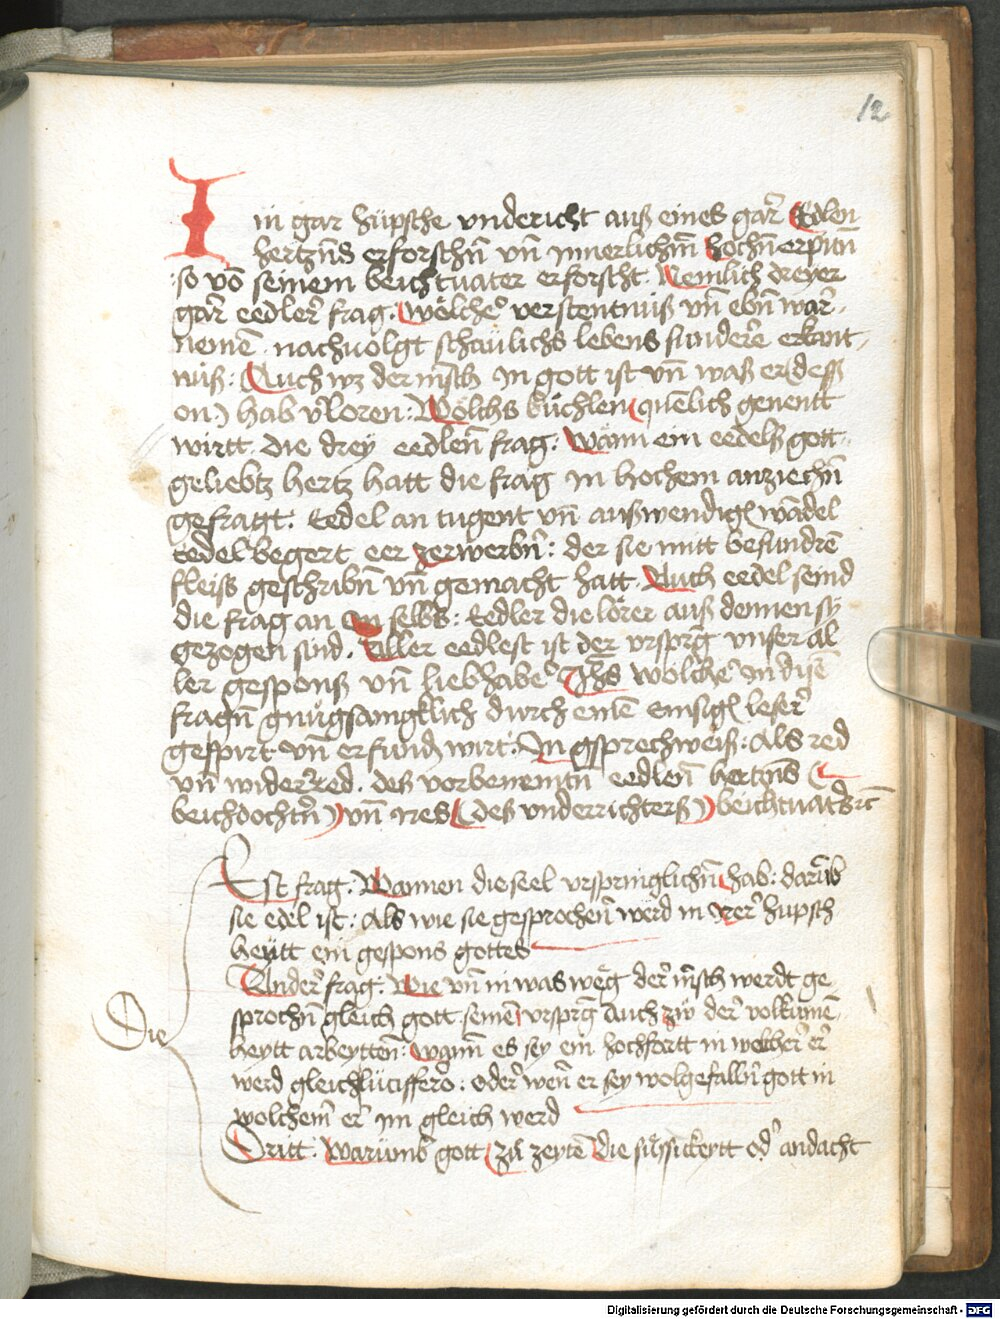 12
I in gar hüpsche undericht auß eines gar Edlen
hertzn̄s erforschn̄ vn̄ Innerlichm̄ hochn̄ erpittn̄
so vō seinem beichtuater erforscht. Nemlich dreyer
gar eedler frag. wölcher verstentnuß vn̄ ebn̄ war-
nemē. nachuolgt schaulichs lebens sundere erkant-
nuß: Auch wz der mēsch In gott ist vn̄ waß er (deß
on) hab v̓loren: Wölchs büchlen genentt
wirtt. die drey eedlen̄ frag. Wann ein eedelß gott-
geliebtz hertz hatt die frag In hochem anziechn̄
gefragt. Eedel an tugent vn̄ außwendigē wādel
eedel begert eer zerwerbn̄: der sie mitt besundrē
fleiss geschribn̄ vn̄ gemacht hatt. Auch eedel seind
die frag an In selbs: Eedler die lörer auß dennen sy
gezogen sind. Aller eedlest ist der vrsprg unser al
ler gesponß vn̄ liebhaber Jhs wölcher In disē
fragn̄ gnügsamgklich durch einē emsigē leser
gespürt vn̄ erfundē wirt. In gsprechweiß: Als red
vn̄ widerred. des vorbenemtn̄ eedlen̄ hertzn̄s (
beichdochtn̄) vn̄ Ires (des underrichterß) beichtuaters &c
Est frag. Wannen die seel vrspringlichn̄ hab: darūb
sie edel ist: Als wie sie gesprochen̄ werd in irer hupsch
heytt ein gespons gottes
Ander frag. Wie vn̄ in was weg der mēsch werdt ge
sprochn̄ gleich gott seinē vrsprg Auch zü der volkumē-
heytt arbeyttn̄: wann es sey ein hochfortt in welcher er
werd gleich lüciffero: oder wen̄ er sey wolgefalln̄ gott in
wolchem er im gleich werd
Die
Dritt. Warümb gott zü zeytē die süssickeytt od̓ andacht
Digitalisierung gefördert durch die Deutsche Forschungsgemeinschaft - DFG